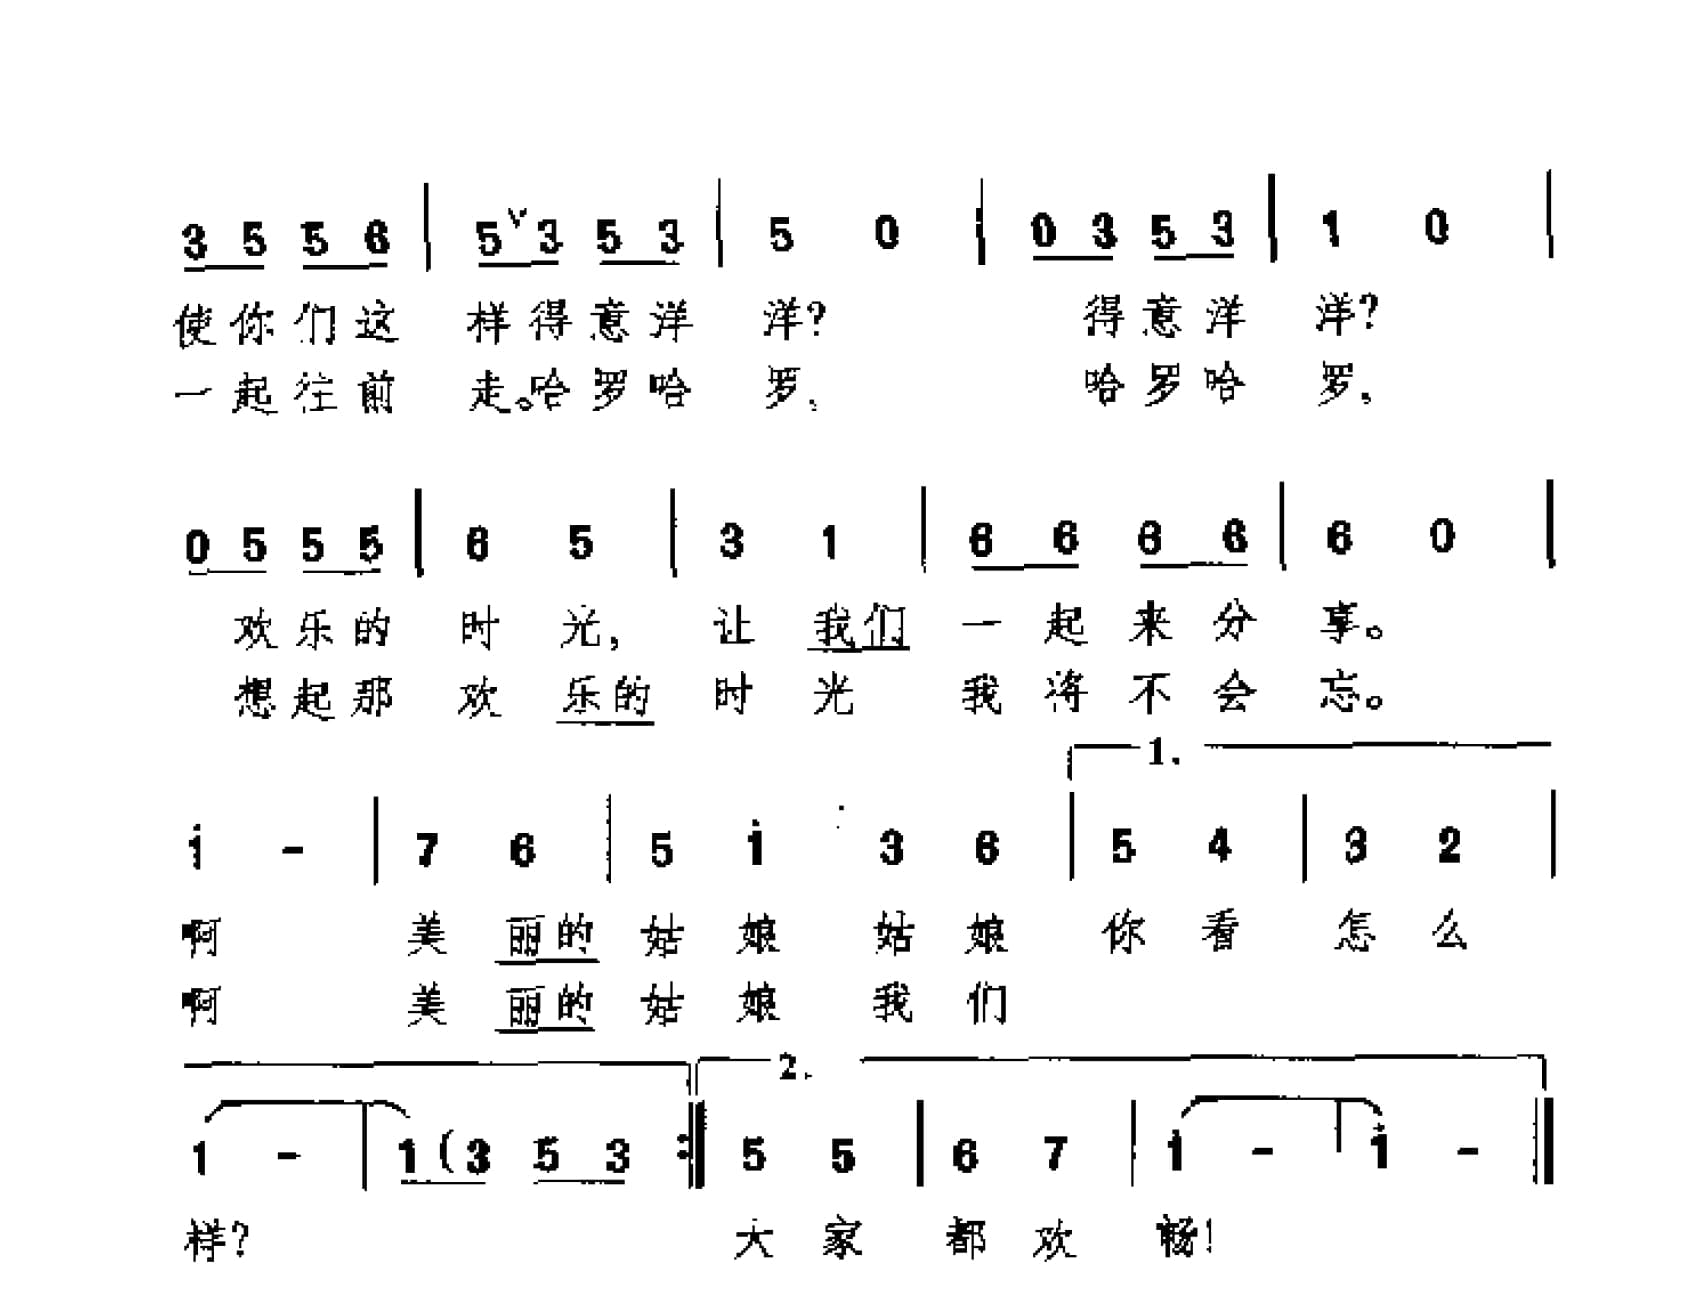 3 5 5 6 | 5 ∨ 3 5 3 | 5 0 | 0 3 5 3 | 1 0 |
使你们这 样得意洋 洋? 得意洋 洋?
一起往前 走。哈罗哈 罗, 哈罗哈 罗,
0 5 5 5 | 6 5 | 3 1 | 6 6 6 6 | 6 0 |
欢乐的 时 光, 让 我们 一起来分 享。
想起那 欢 乐的 时 光 我将不会 忘。
1.
i - | 7 6 | 5 i 3 6 | 5 4 | 3 2 |
啊 美 丽的 姑 娘 姑 娘 你 看 怎 么
啊 美 丽的 姑 娘 我 们
2.
1 - | 1 (3 5 3 :| 5 5 | 6 7 | i - | i - ‖
样? 大 家 都 欢 畅!